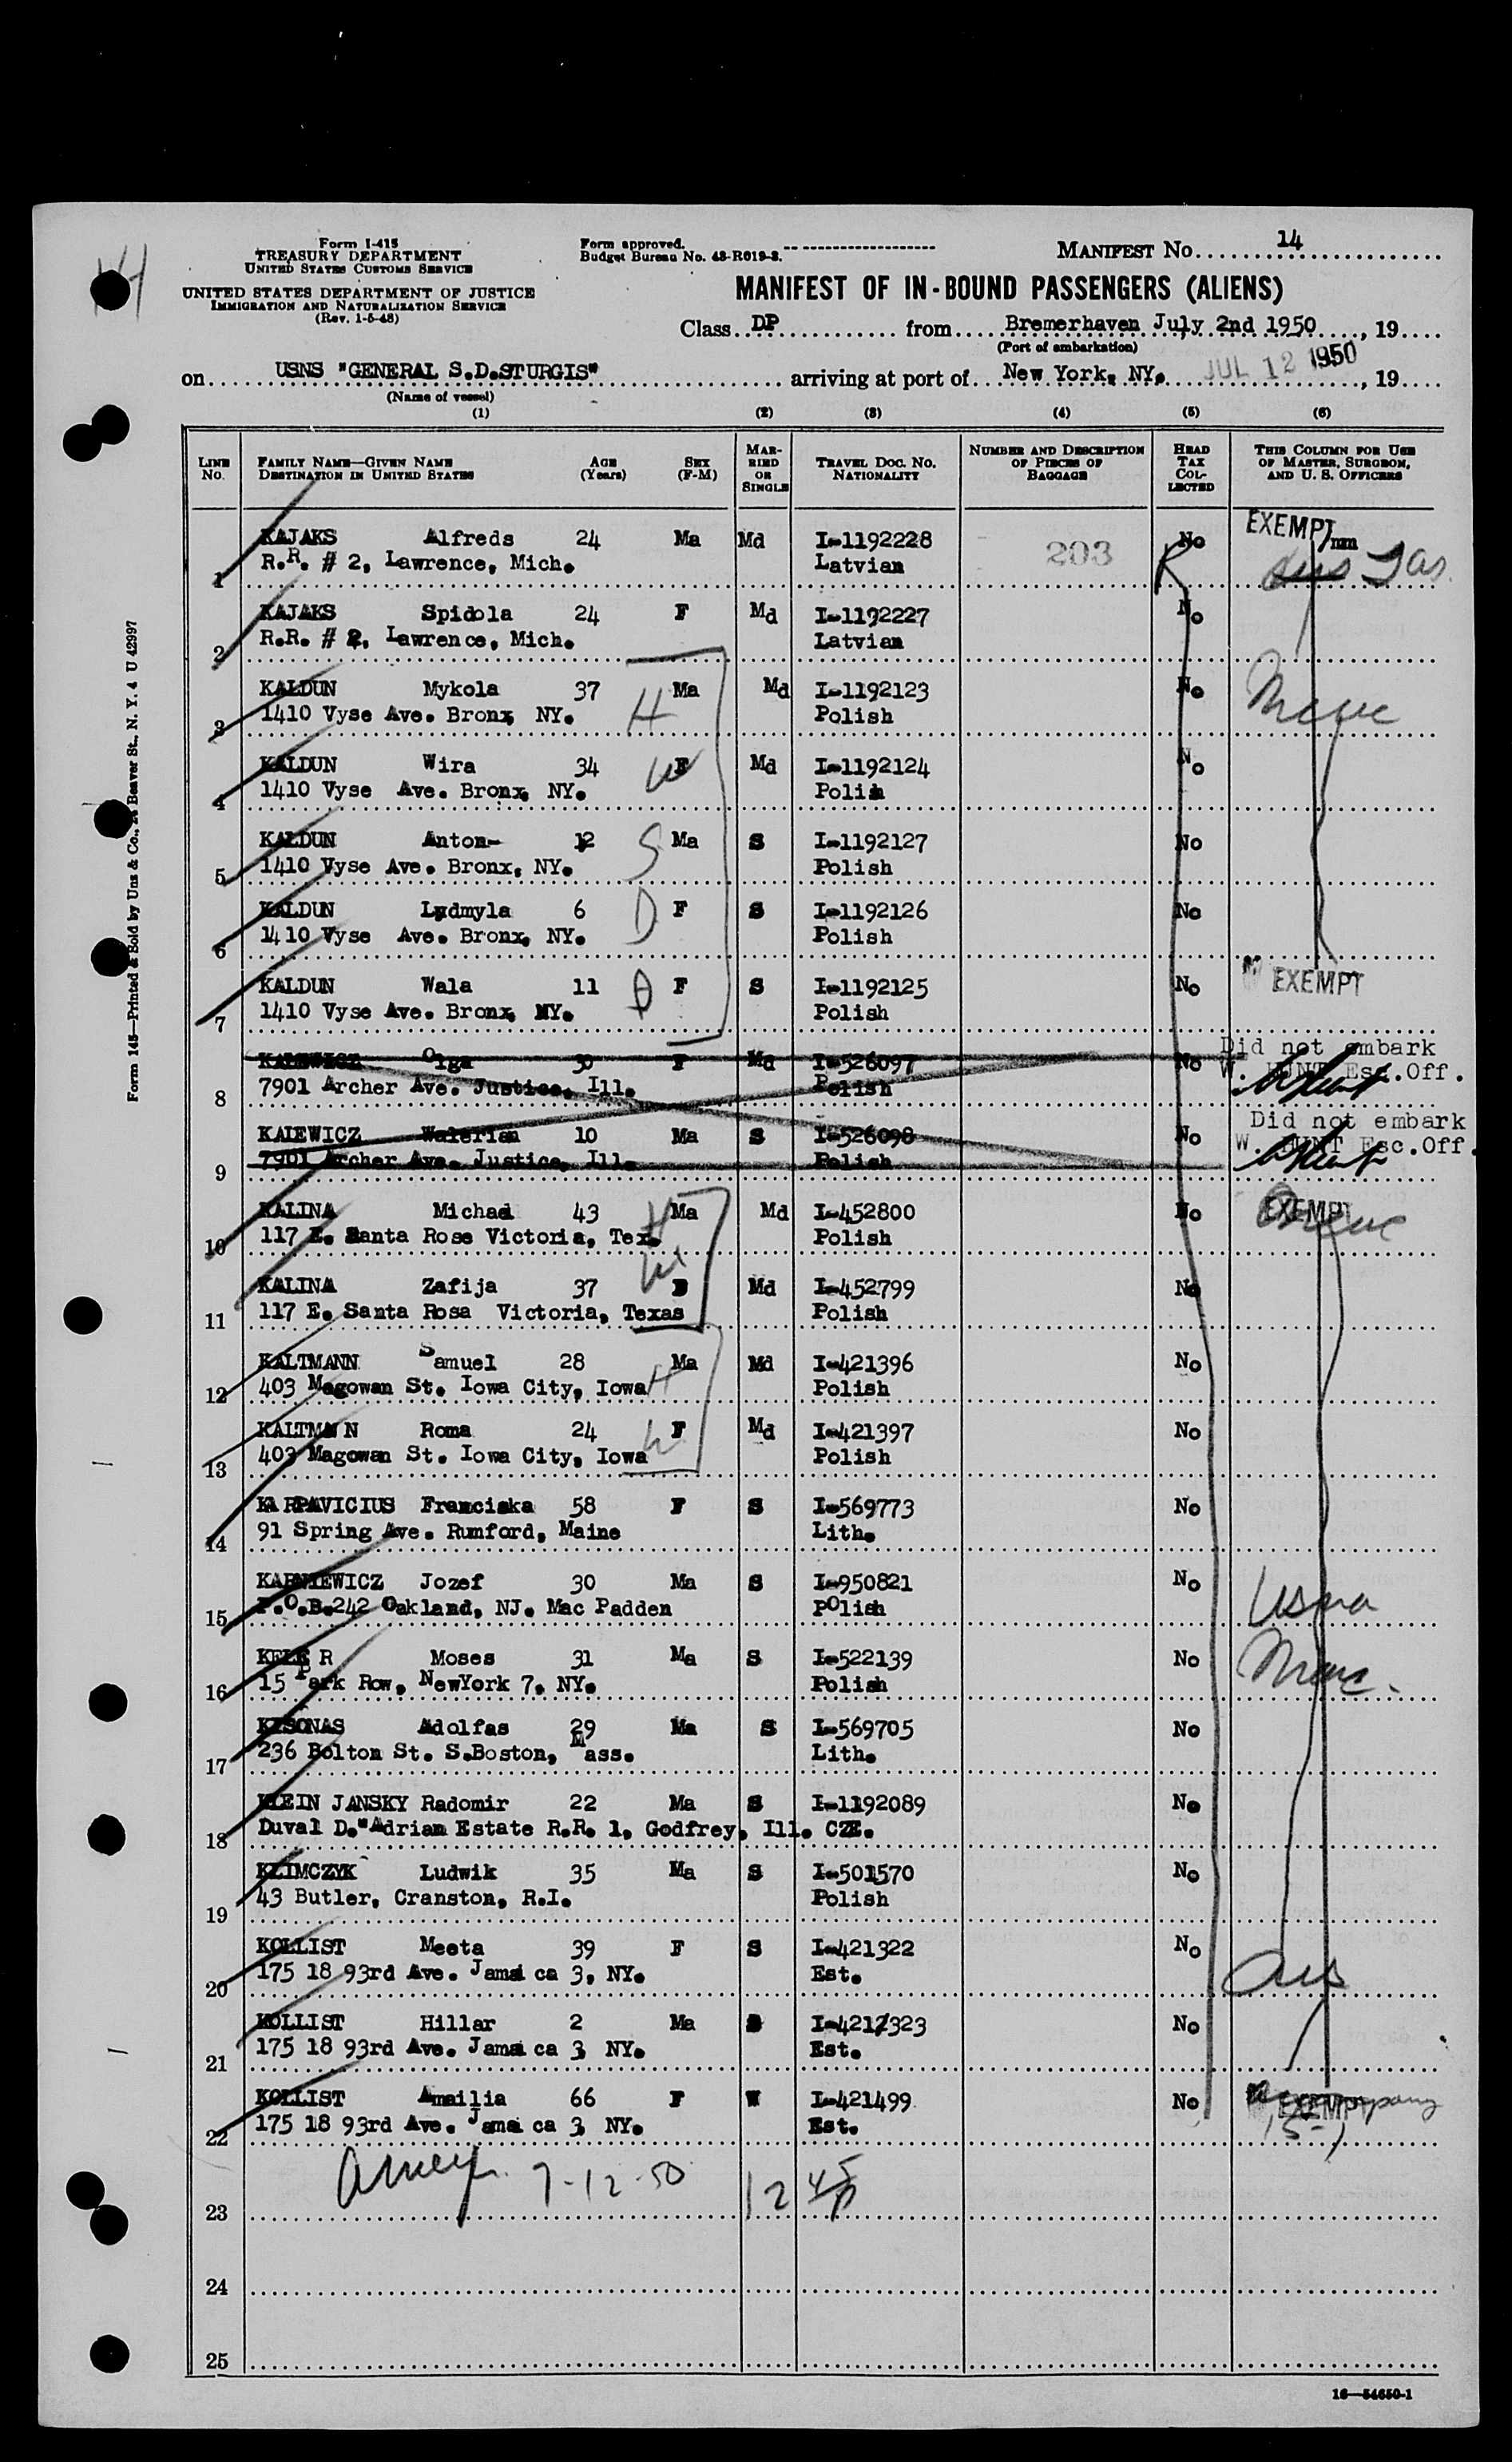 14
Form I-415
TREASURY DEPARTMENT
UNITED STATES CUSTOMS SERVICE
UNITED STATES DEPARTMENT OF JUSTICE
IMMIGRATION AND NATURALIZATION SERVICE
(Rev. 1-5-48)
Form approved.
Budget Bureau No. 43-R019-3.
MANIFEST NO. 14
MANIFEST OF IN-BOUND PASSENGERS (ALIENS)
Class DP from Bremerhaven July 2nd 1950, 19
(Port of embarkation)
on USNS "GENERAL S.D.STURGIS" arriving at port of New York, NY. JUL 12 1950, 19
(Name of vessel)
(1) (2) (3) (4) (5) (6)
LINE No. FAMILY NAME—GIVEN NAME DESTINATION IN UNITED STATES AGE (Years) SEX (F-M) MARRIED OR SINGLE TRAVEL DOC. NO. NATIONALITY NUMBER AND DESCRIPTION OF PIECES OF BAGGAGE HEAD TAX COLLECTED THIS COLUMN FOR USE OF MASTER, SURGEON, AND U. S. OFFICERS
KAJAKS Alfreds 24 Ma Md I-1192228 203 No EXEMPT
1 R.R. # 2, Lawrence, Mich. Latvian
KAJAKS Spidola 24 F Md I-1192227 No
2 R.R. # 2, Lawrence, Mich. Latvian
KALDUN Mykola 37 H Ma Md I-1192123 No
3 1410 Vyse Ave. Bronx, NY. Polish
KALDUN Wira 34 W F Md I-1192124 No
4 1410 Vyse Ave. Bronx, NY. Polish
KALDUN Anton- 12 S Ma S I-1192127 No
5 1410 Vyse Ave. Bronx, NY. Polish
KALDUN Ludmyla 6 D F S I-1192126 No
6 1410 Vyse Ave. Bronx, NY. Polish
KALDUN Wala 11 D F S I-1192125 No EXEMPT
7 1410 Vyse Ave. Bronx, NY. Polish
KALEWICZ Olga 30 F Md I-526097 No Did not embark
8 7901 Archer Ave. Justice, Ill. Polish W. HUNT Esc.Off.
KALEWICZ Walerian 10 Ma S I-526098 No Did not embark
9 7901 Archer Ave. Justice, Ill. Polish W. HUNT Esc.Off.
KALINA Michael 43 H Ma Md I-452800 No EXEMPT
10 117 E. Santa Rose Victoria, Tex. Polish
KALINA Zafija 37 W Md I-452799 No
11 117 E. Santa Rosa Victoria, Texas Polish
KALTMANN Samuel 28 Ma Md I-421396 No
12 403 Magowan St. Iowa City, Iowa H Polish
KALTMANN Roma 24 W F Md I-421397 No
13 403 Magowan St. Iowa City, Iowa Polish
KARPAVICIUS Franciska 58 F S I-569773 No
14 91 Spring Ave. Rumford, Maine Lith.
KARNIEWICZ Jozef 30 Ma S I-950821 No
15 P.O.B.242 Oakland, NJ. Mac Padden Polish
KELER Moses 31 Ma S I-522139 No
16 15 Park Row, NewYork 7, NY. Polish
KESONAS Adolfas 29 Ma S I-569705 No
17 236 Bolton St. S.Boston, Mass. Lith.
KLEIN JANSKY Radomir 22 Ma S I-1192089 No
18 Duval D."Adrian Estate R.R. 1, Godfrey, Ill. CZE.
KLIMCZYK Ludwik 35 Ma S I-501570 No
19 43 Butler, Cranston, R.I. Polish
KOLLIST Meeta 39 F S I-421322 No
20 175 18 93rd Ave. Jamaica 3, NY. Est.
KOLLIST Hillar 2 Ma S I-421323 No
21 175 18 93rd Ave. Jamaica 3, NY. Est.
KOLLIST Amailia 66 F W I-421499 No EXEMPT
22 175 18 93rd Ave. Jamaica 3, NY. Est.
7-12-50 12 45 p
23
24
25
16—54650-1
Form 145—Printed & Sold by Unz & Co., Beaver St., N. Y. 4 U 42997